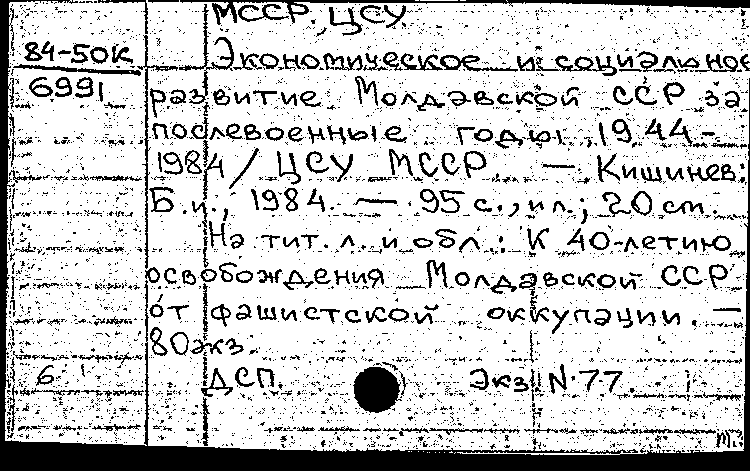 МССР. ЦСУ.
84-50к Экономическое и социальное
6991 развитие Молдавской ССР за
послевоенные годы, 1944-
1984 / ЦСУ МССР. — Кишинев:
Б.и., 1984. — 95 с., ил.; 20 см
На тит. л. и обл.: К 40-летию
освобождения Молдавской ССР
от фашистской оккупации. —
80 экз.
6 ДСП. Экз. N 77.
т.